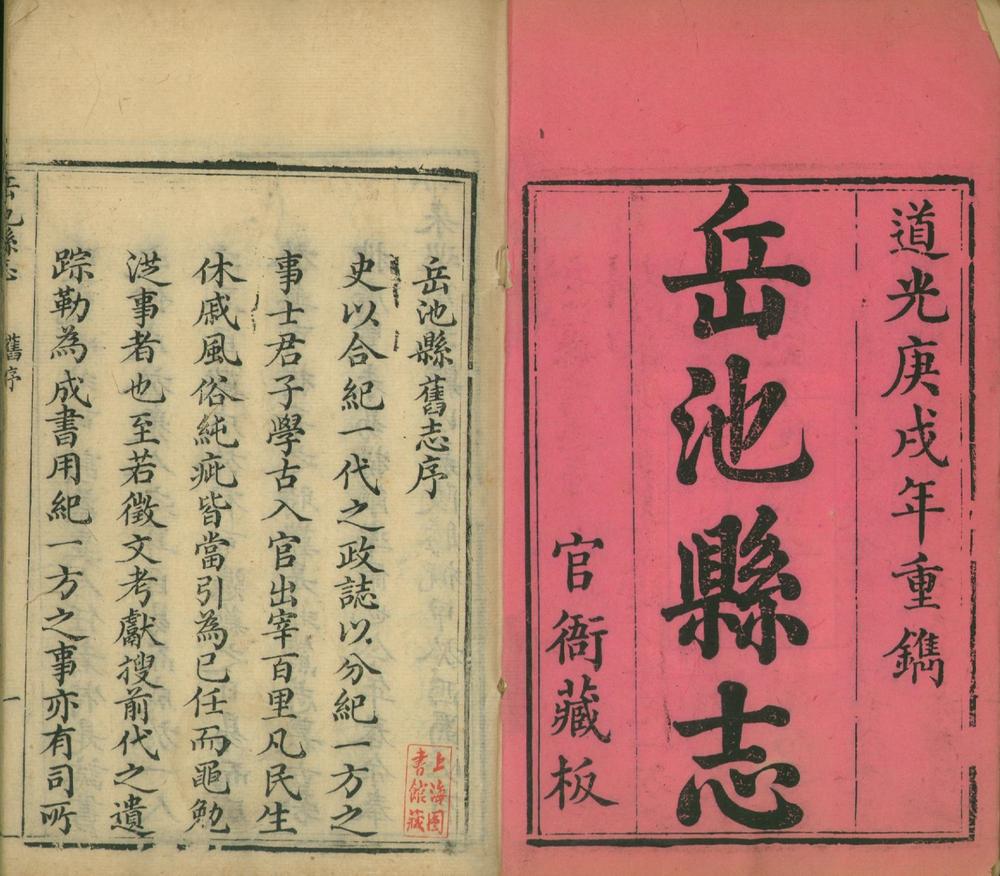 道光庚戌年重鐫
岳池縣志
官衙藏板
岳池縣舊志序
史以合紀一代之政誌以分紀一方之
事士君子學古入官出宰百里凡民生
休戚風俗純疵皆當引為已任而黽勉
從事者也至若徵文考獻搜前代之遺
踪勒為成書用紀一方之事亦有司所
上海圖
書館藏
岳池縣志
舊序
一